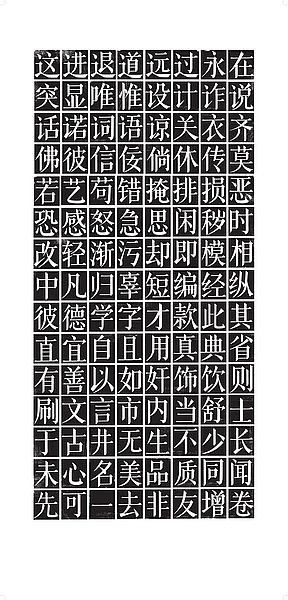 这进退道远过永在
突显唯惟设计诈说
话诺词语谅关衣齐
佛彼信佞倘休传莫
若艺苟错掩排损恶
恐感怒急思闲秽时
改轻渐污却即模相
中凡归辜短编经纵
彼德学字才款此其
直宜自且用真典省
有善以如奸饰饮则
刷文言市内当舒士
于古井无生不少长
未心名美品质同闻
先可一去非友增卷